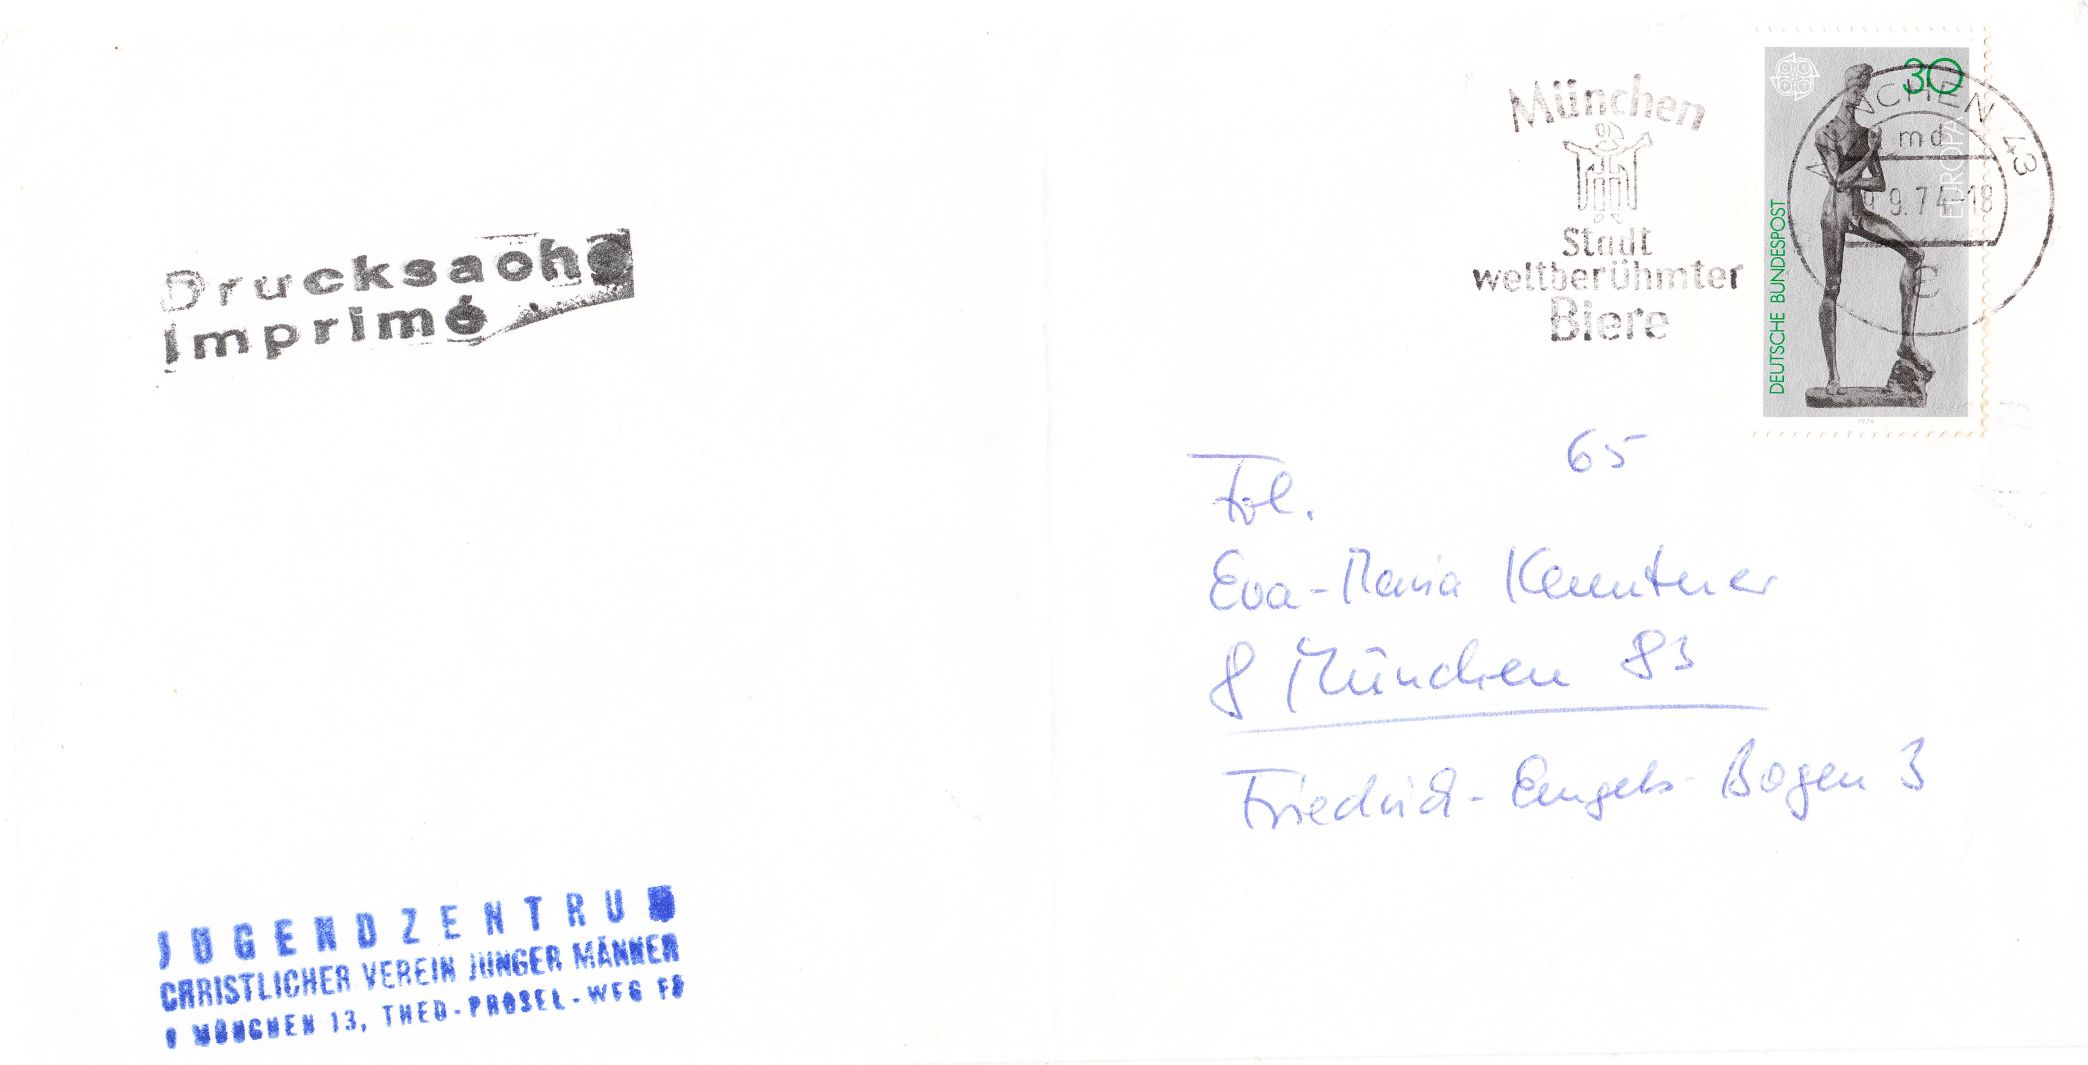 Drucksache
Imprimé
München
Stadt
weltberühmter
Biere
30
EUROPA
DEUTSCHE BUNDESPOST
1974
MÜNCHEN 43
md
9.74-18
c
65
Frl.
Eva-Maria Kemntner
8 München 83
Friedrich-Engels-Bogen 3
JUGENDZENTRUM
CHRISTLICHER VEREIN JUNGER MÄNNER
8 MÜNCHEN 13, THEO-PROSEL-WEG